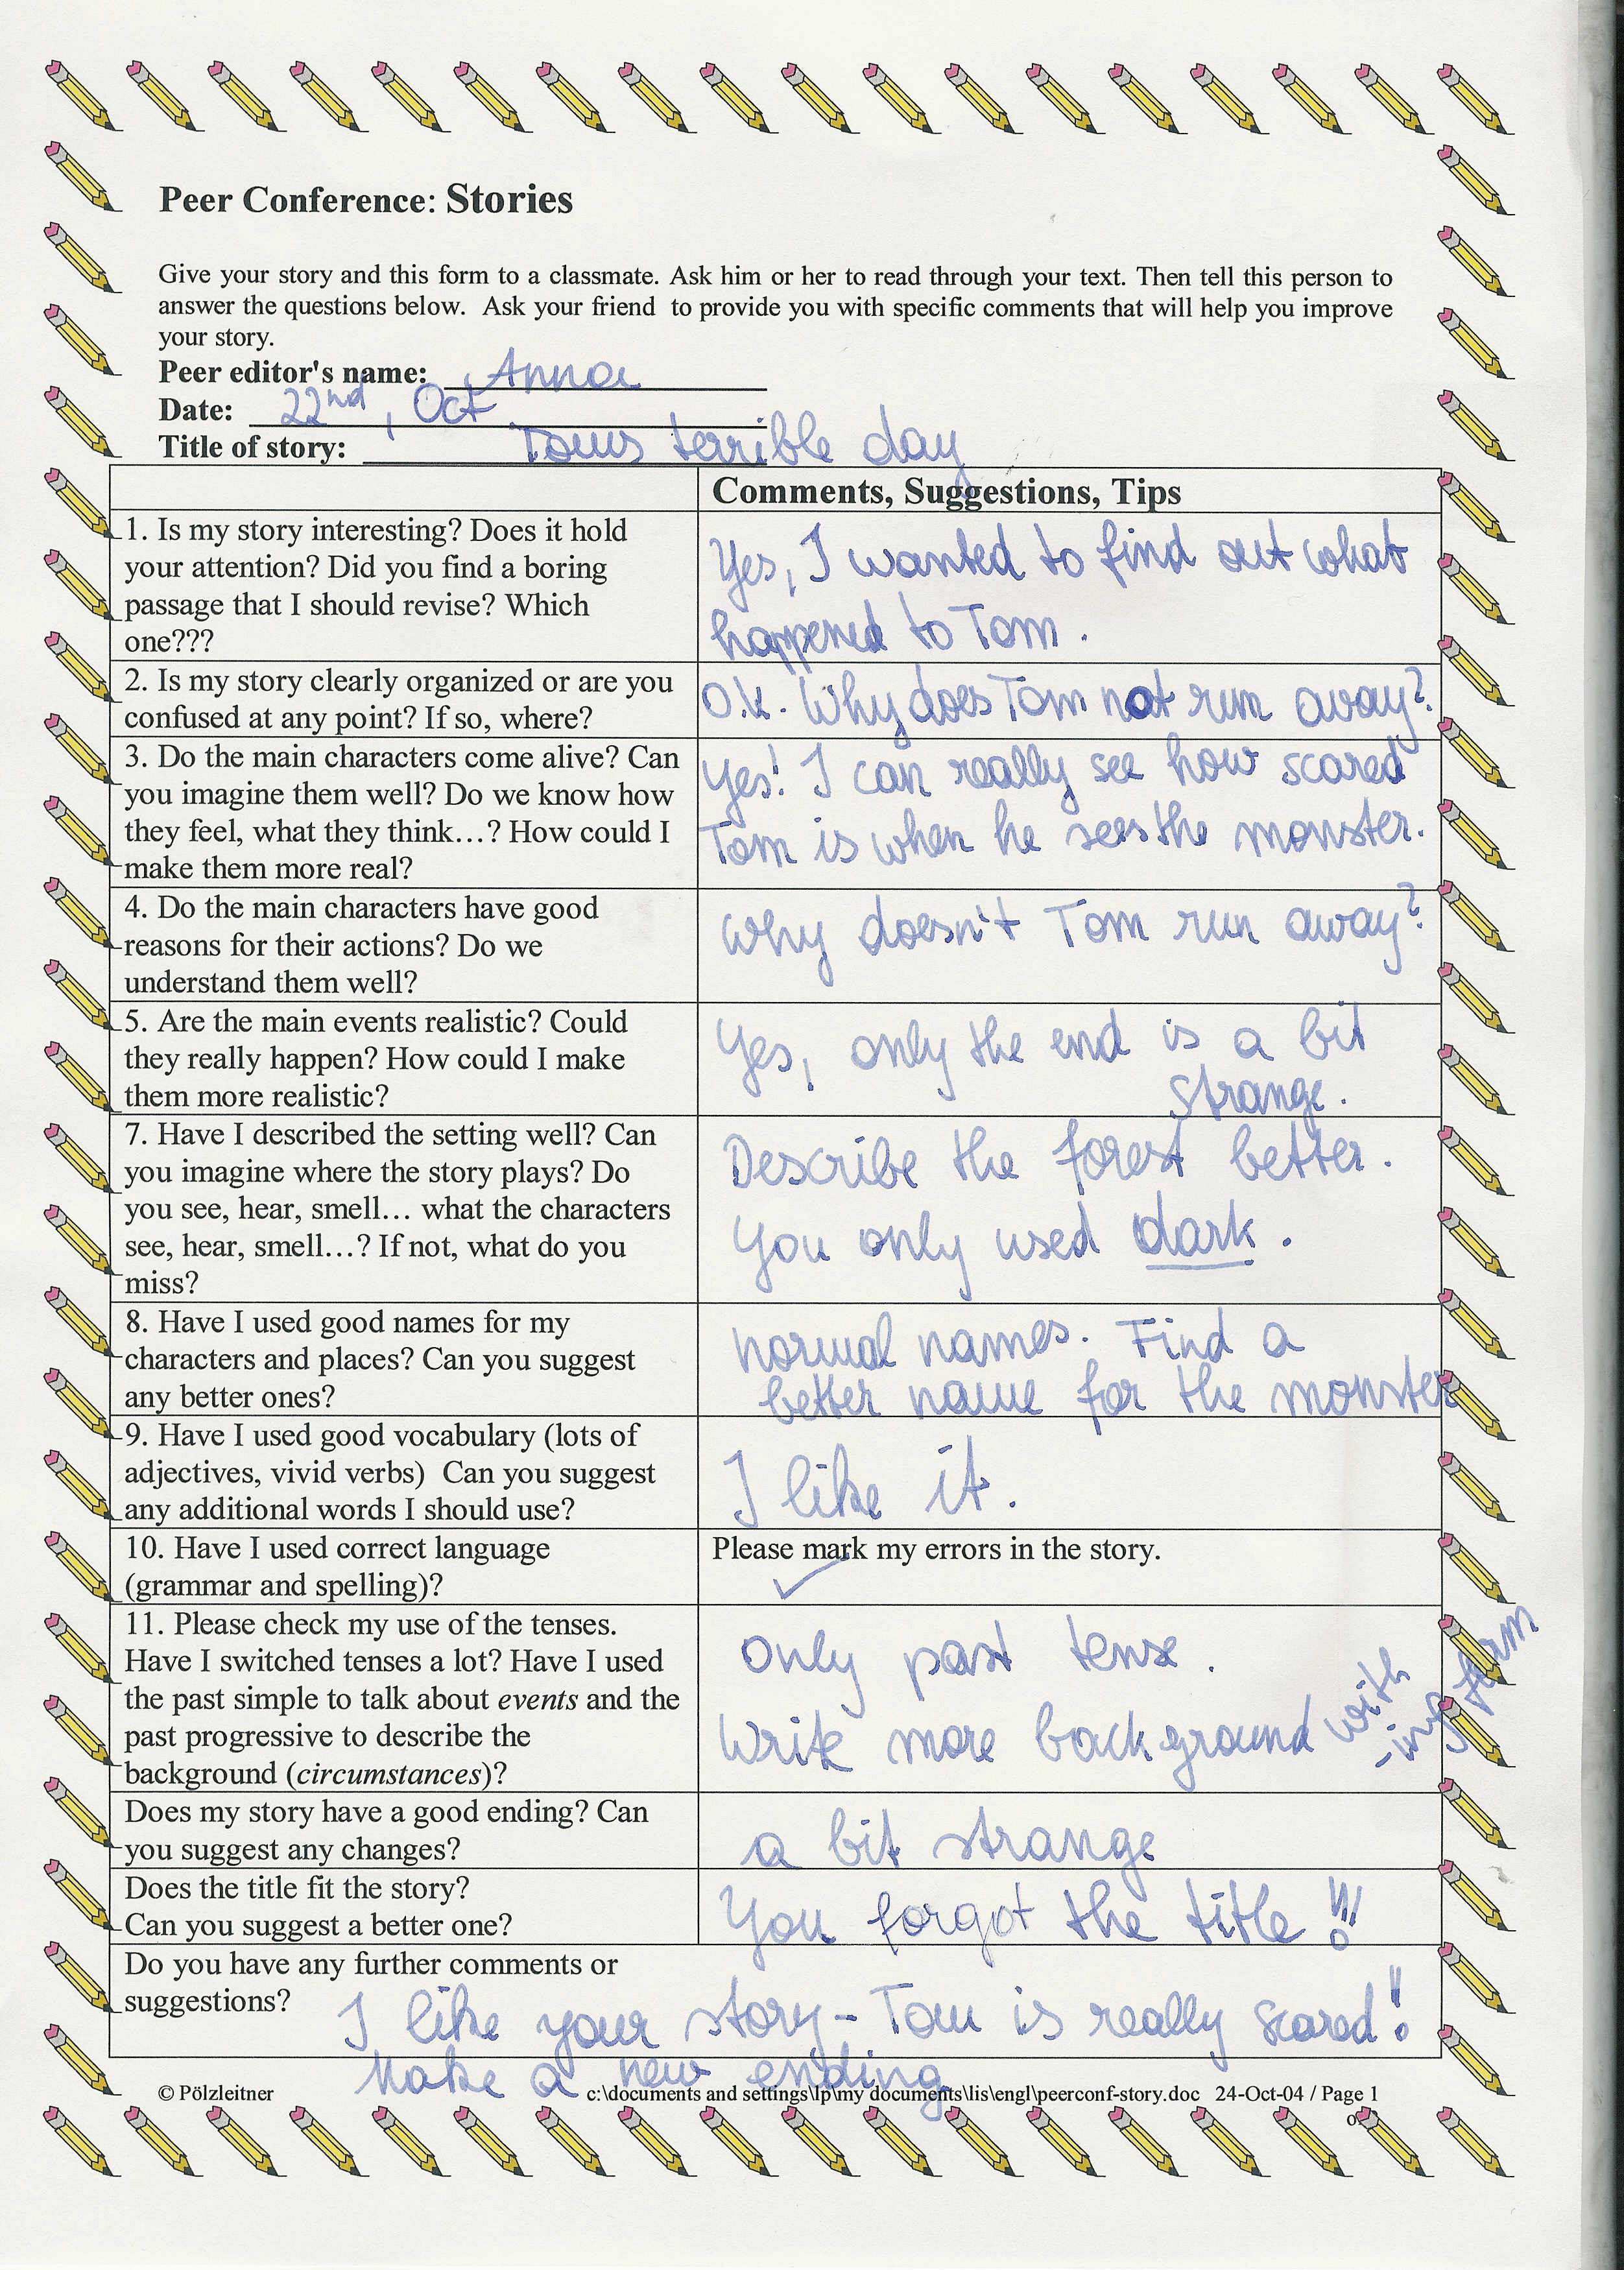 Peer Conference: Stories
Give your story and this form to a classmate. Ask him or her to read through your text. Then tell this person to
answer the questions below. Ask your friend to provide you with specific comments that will help you improve
your story.
Peer editor's name: Anna
Date: 22nd, Oct
Title of story: Toms terrible day
Comments, Suggestions, Tips
1. Is my story interesting? Does it hold
your attention? Did you find a boring
passage that I should revise? Which
one???
Yes, I wanted to find out what
happened to Tom.
2. Is my story clearly organized or are you
confused at any point? If so, where?
O.K. Why does Tom not run away?
3. Do the main characters come alive? Can
you imagine them well? Do we know how
they feel, what they think…? How could I
make them more real?
Yes! I can really see how scared
Tom is when he sees the monster.
4. Do the main characters have good
reasons for their actions? Do we
understand them well?
Why doesn't Tom run away?
5. Are the main events realistic? Could
they really happen? How could I make
them more realistic?
Yes, only the end is a bit
strange.
7. Have I described the setting well? Can
you imagine where the story plays? Do
you see, hear, smell… what the characters
see, hear, smell…? If not, what do you
miss?
Describe the forest better.
You only used dark.
8. Have I used good names for my
characters and places? Can you suggest
any better ones?
normal names. Find a
better name for the monster
9. Have I used good vocabulary (lots of
adjectives, vivid verbs) Can you suggest
any additional words I should use?
I like it.
10. Have I used correct language
(grammar and spelling)?
Please mark my errors in the story.
11. Please check my use of the tenses.
Have I switched tenses a lot? Have I used
the past simple to talk about events and the
past progressive to describe the
background (circumstances)?
only past tense.
Write more background with
-ing form
Does my story have a good ending? Can
you suggest any changes?
a bit strange
Does the title fit the story?
Can you suggest a better one?
You forgot the title!!!
Do you have any further comments or
suggestions?
I like your story - Tom is really scared!!
Make a new ending
© Pölzleitner c:\documents and settings\lp\my documents\lis\engl\peerconf-story.doc 24-Oct-04 / Page 1